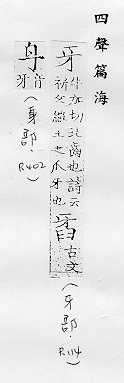 四聲篇海
牙
牛加切齒也詩云
祈父維王之爪牙也
古文
(牙部.P.114)
牙音
(身部.P.402)